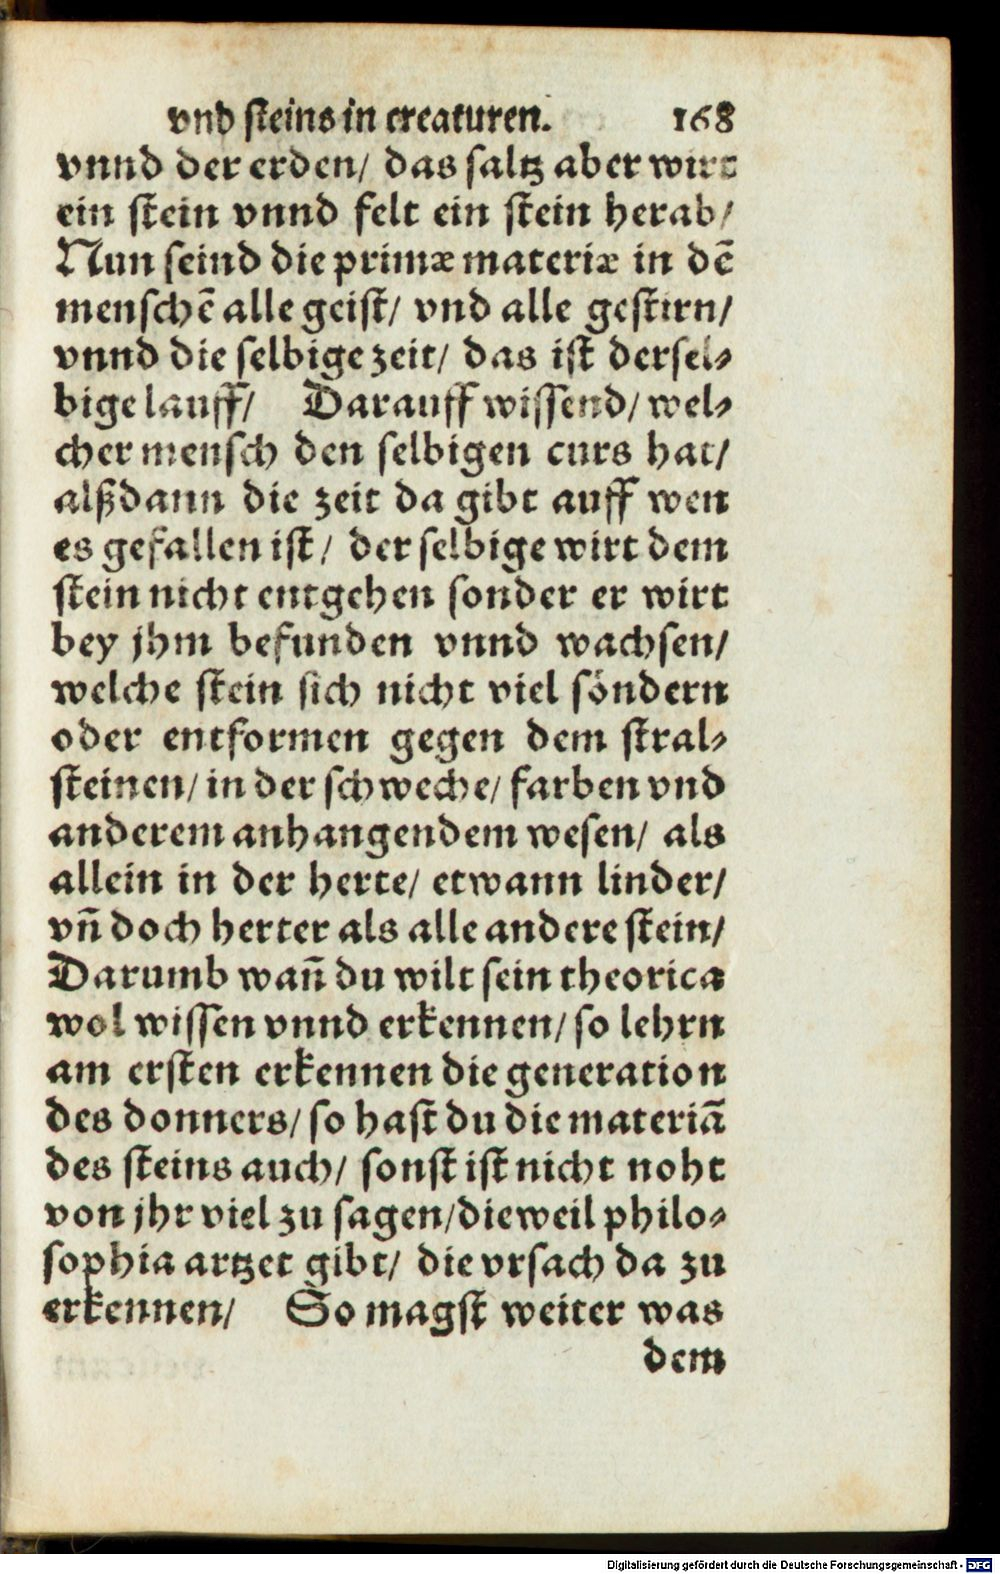 vnd steins in creaturen. 168
vnnd der erden/ das saltz aber wirt
ein stein vnnd felt ein stein herab/
Nun seind die primæ materiæ in dē
menschē alle geist/ vnd alle gestirn/
vnnd die selbige zeit/ das ist dersel⸗
bige lauff/ Darauff wissend/ wel⸗
cher mensch den selbigen curs hat/
alßdann die zeit da gibt auff wen
es gefallen ist/ der selbige wirt dem
stein nicht entgehen sonder er wirt
bey jhm befunden vnnd wachsen/
welche stein sich nicht viel söndern
oder entformen gegen dem stral⸗
steinen/ in der schweche/ farben vnd
anderem anhangendem wesen/ als
allein in der herte/ etwann linder/
vñ doch herter als alle andere stein/
Darumb wañ du wilt sein theorica
wol wissen vnnd erkennen/ so lehrn
am ersten erkennen die generation
des donners/ so hast du die materiā
des steins auch/ sonst ist nicht noht
von jhr viel zu sagen/ dieweil philo⸗
sophia artzet gibt/ die vrsach da zu
erkennen/ So magst weiter was
dem
Digitalisierung gefördert durch die Deutsche Forschungsgemeinschaft - DFG